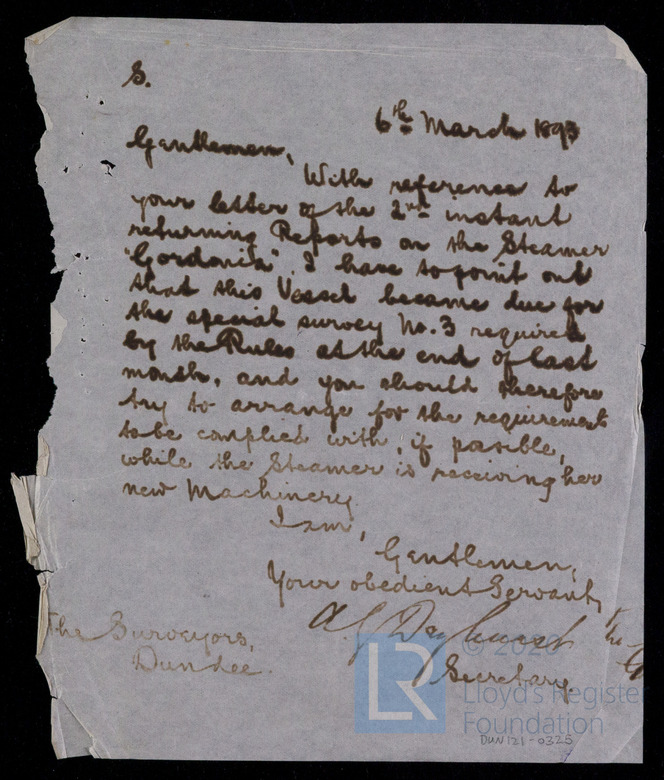 S.
6th March 1893
Gentlemen,
With reference to
your letter of the 2nd instant
returning Reports on the Steamer
"Gordonia" I have to point out
that this Vessel became due for
the special survey No. 3 required
by the Rules at the end of last
month, and you should therefore
try to arrange for the requirement
to be complied with, if possible,
while the Steamer is receiving her
new Machinery
I am,
Gentlemen,
Your obedient Servant,
Secretary
The Surveyors,
Dundee.
LR
© 2020
Lloyd's Register
Foundation
DUN121-0325